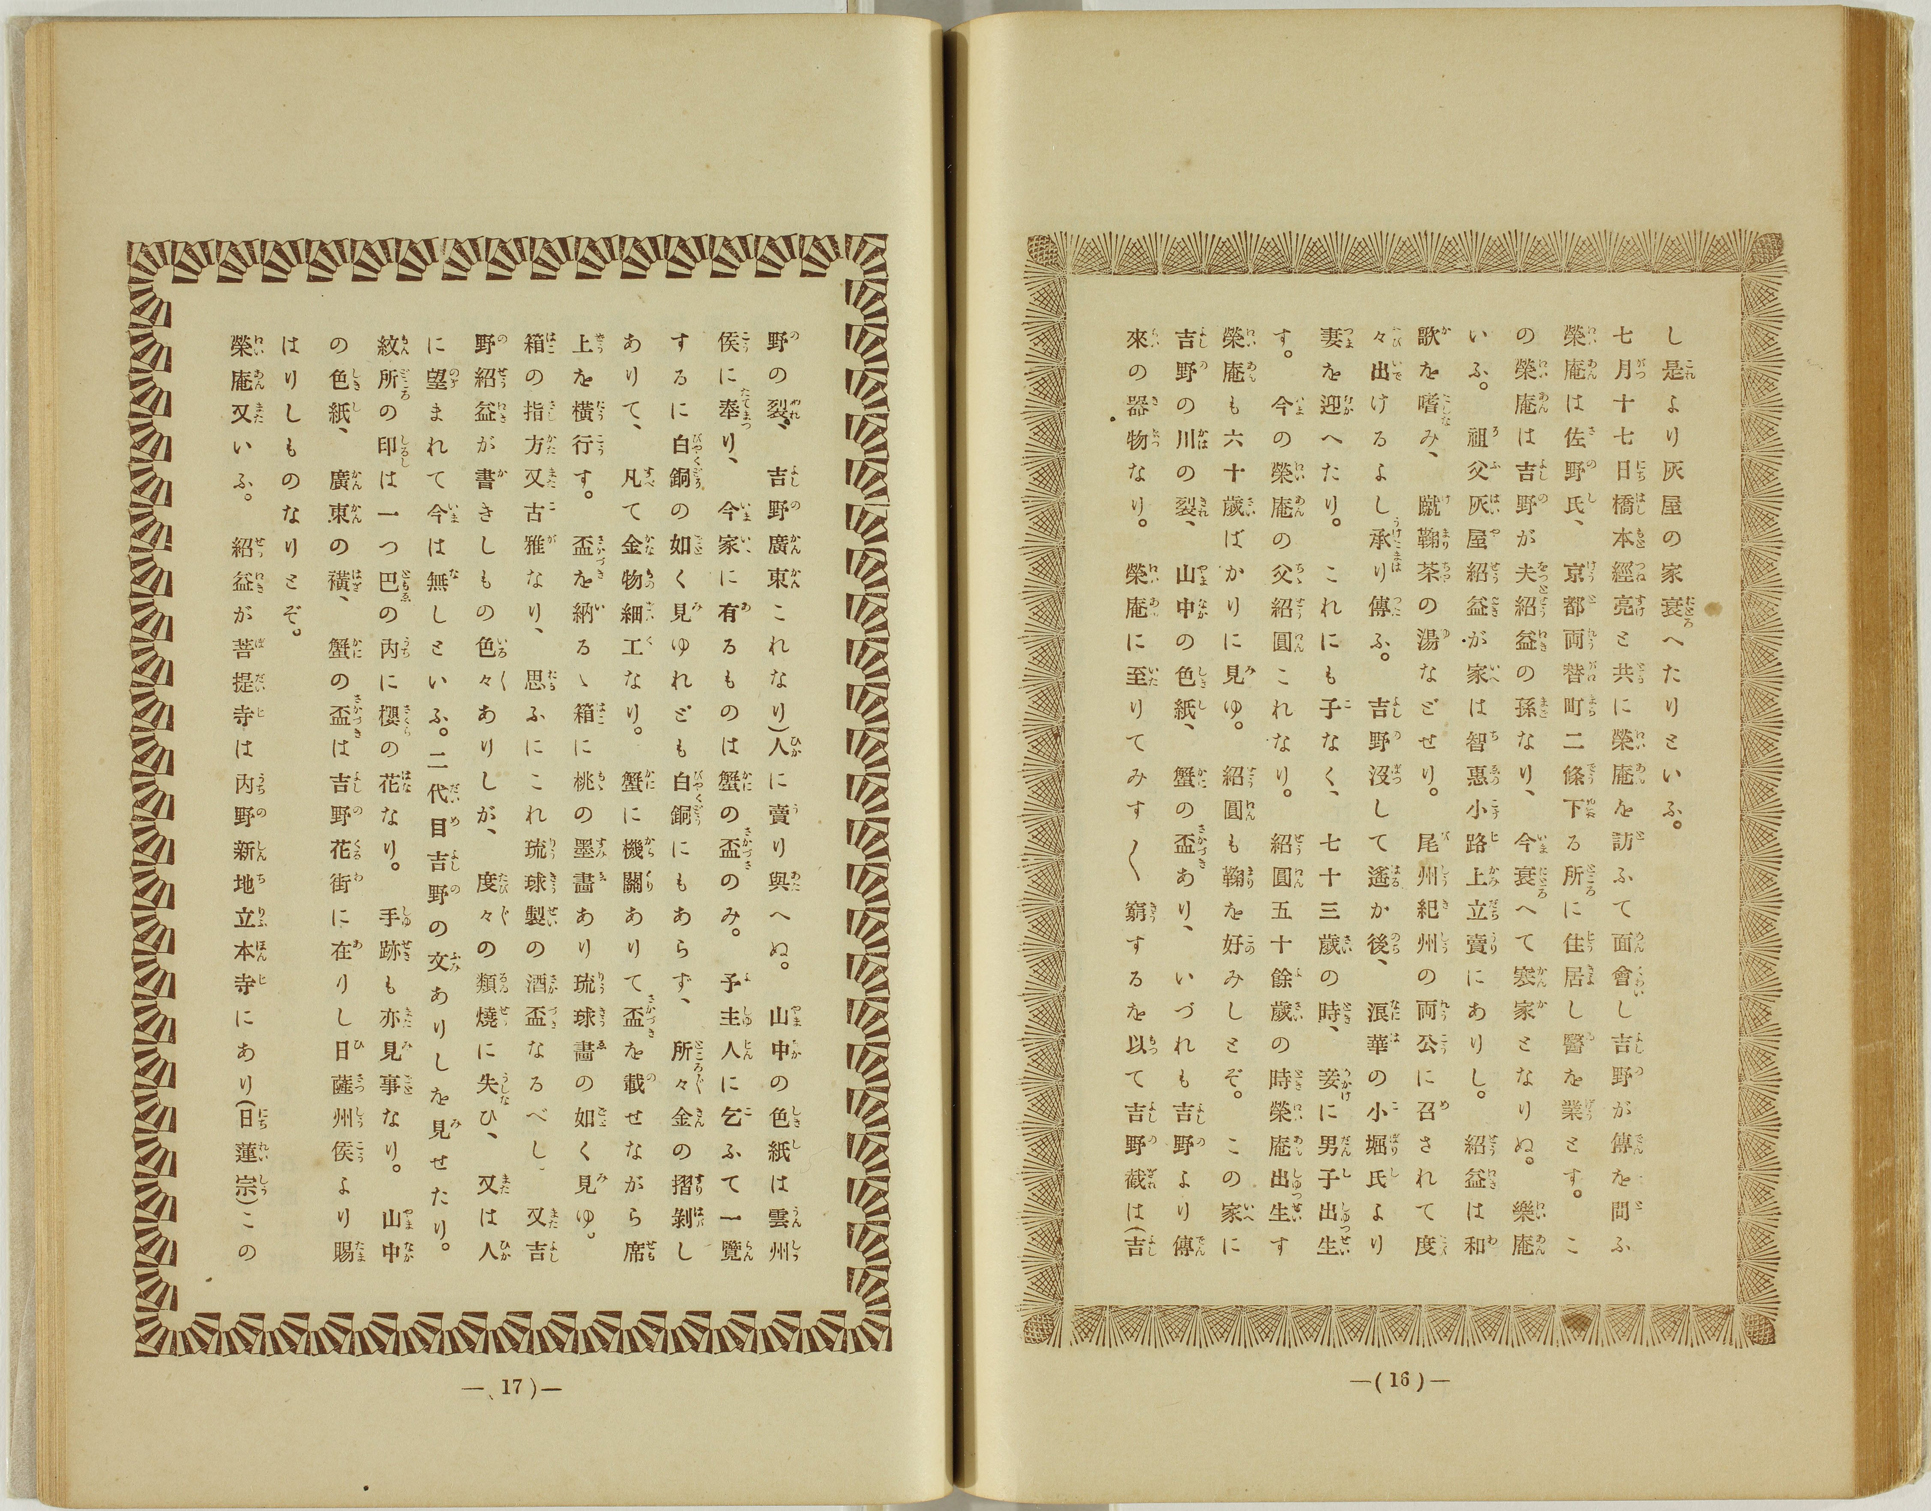 し是より灰屋の家衰へたりといふ。
七月十七日橋本經亮と共に榮庵を訪ふて面會し吉野が傳を問ふ
榮庵は佐野氏、京都両替町二條下る所に住居し醫を業とす。こ
の榮庵は吉野が夫紹益の孫なり、今衰へて寒家となりぬ。樂庵
いふ。祖父灰屋紹益が家は智惠小路上立賣にありし。紹益は和
歌を嗜み、蹴鞠茶の湯などせり。尾州紀州の両公に召されて度
々出けるよし承り傳ふ。吉野沒して遙か後、浪華の小堀氏より
妻を迎へたり。これにも子なく、七十三歲の時、妾に男子出生
す。今の榮庵の父紹圓これなり。紹圓五十餘歲の時榮庵出生す
榮庵も六十歲ばかりに見ゆ。紹圓も鞠を好みしとぞ。この家に
吉野の川の裂、山中の色紙、蟹の盃あり、いづれも吉野より傳
來の器物なり。榮庵に至りてみす〱窮するを以て吉野截は(吉
—(16)—
野の裂、吉野廣東これなり)人に賣り與へぬ。山中の色紙は雲州
侯に奉り、今家に有るものは蟹の盃のみ。予主人に乞ふて一覽
するに白銅の如く見ゆれども白銅にもあらず、所々金の摺剝し
ありて、凡て金物細工なり。蟹に機關ありて盃を載せながら席
上を橫行す。盃を納るゝ箱に桃の墨畵あり琉球畵の如く見ゆ。
箱の指方又古雅なり、思ふにこれ琉球製の酒盃なるべし。又吉
野紹益が書きしもの色々ありしが、度々の類燒に失ひ、又は人
に望まれて今は無しといふ。二代目吉野の文ありしを見せたり。
紋所の印は一つ巴の内に櫻の花なり。手跡も亦見事なり。山中
の色紙、廣東の襀、蟹の盃は吉野花街に在りし日薩州侯より賜
はりしものなりとぞ。
榮庵又いふ。紹益が菩提寺は内野新地立本寺にあり(日蓮宗)この
—(17)—